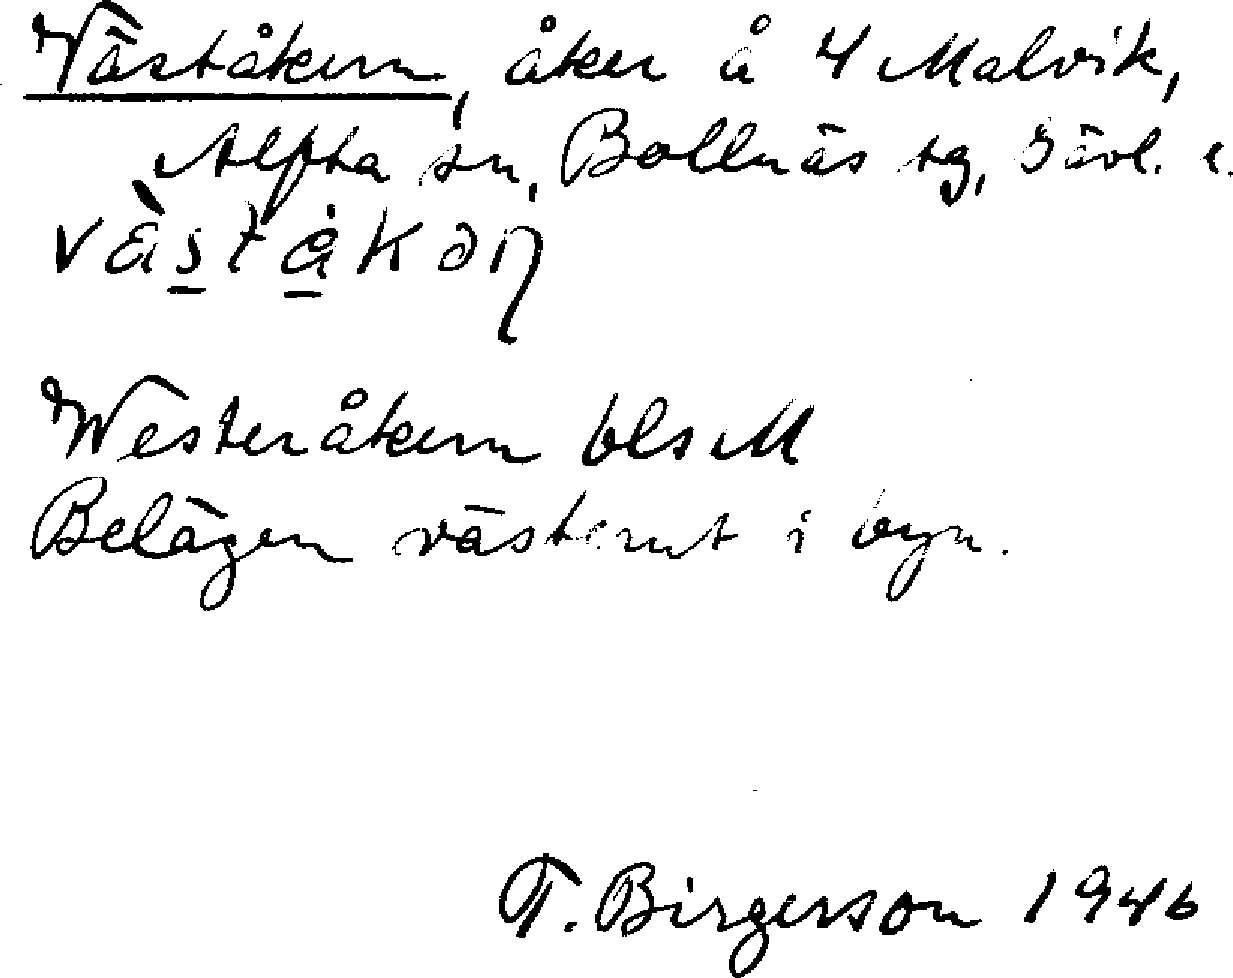 Väståkern, åker å 4 Malvik,
Alfta sn, Bollnäs tg, Gävl. l.
våståkəŋ
Westeråkern bls M
Belägen västerut i byn.
T. Birgerson 1946